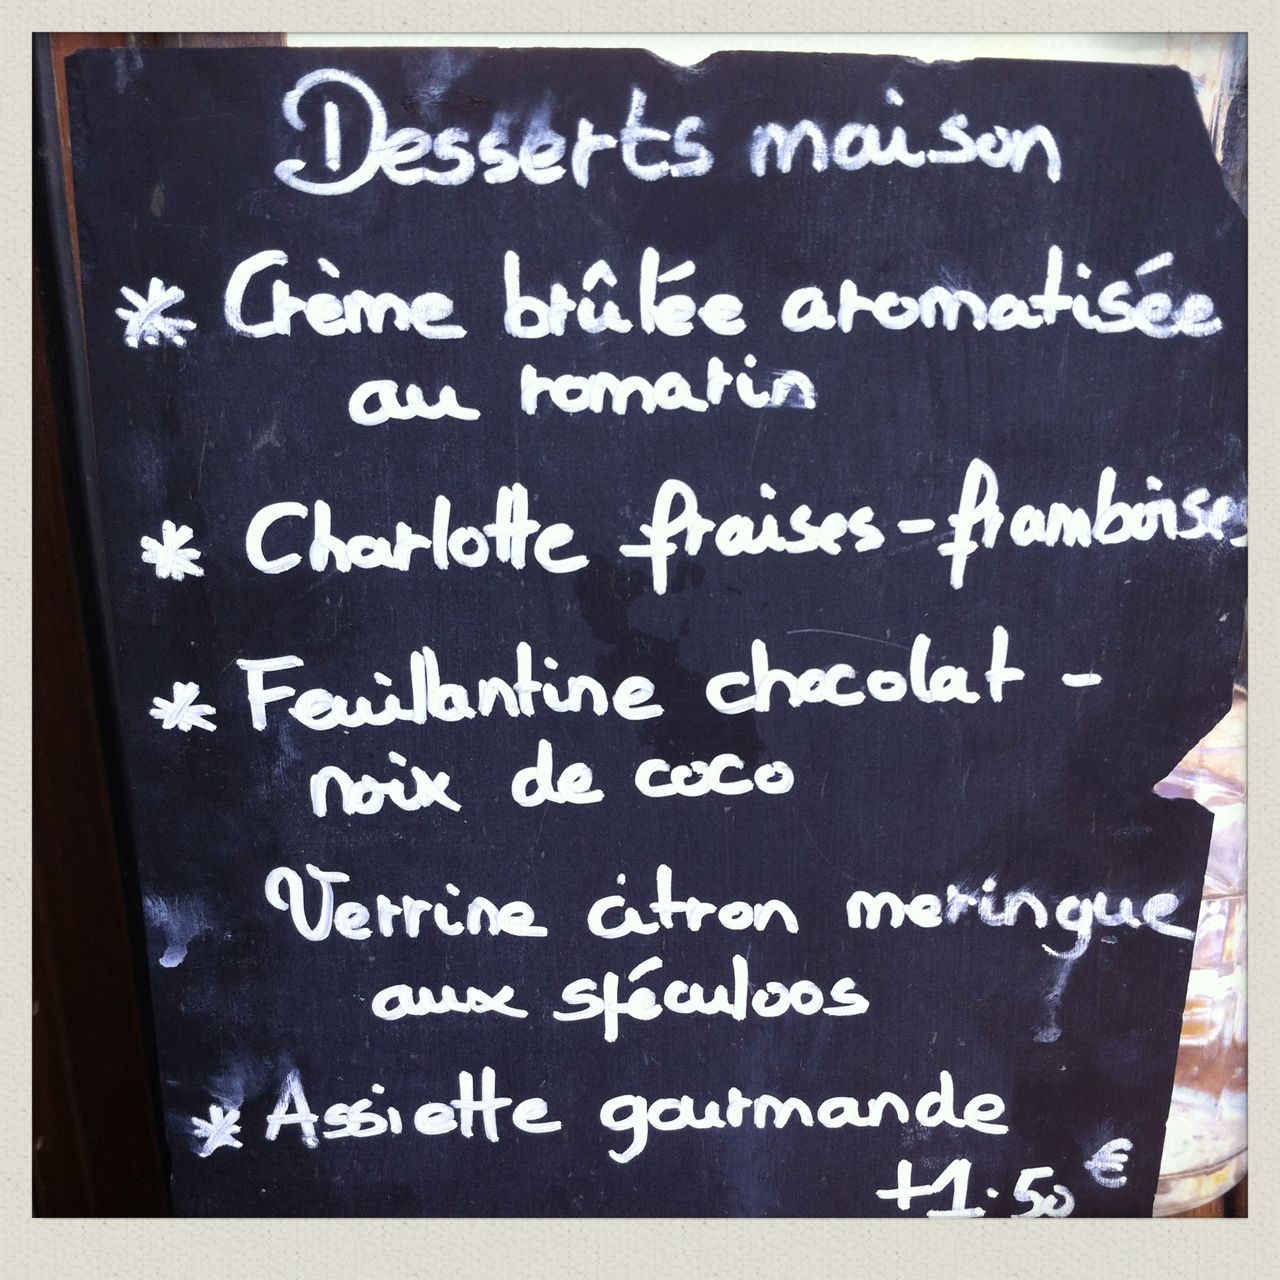 Desserts maison
* Crème brûlée aromatisée
au romarin
* Charlotte fraises-framboises
* Feuillantine chocolat -
noix de coco
Verrine citron meringue
aux spéculoos
* Assiette gourmande
+1.50 €